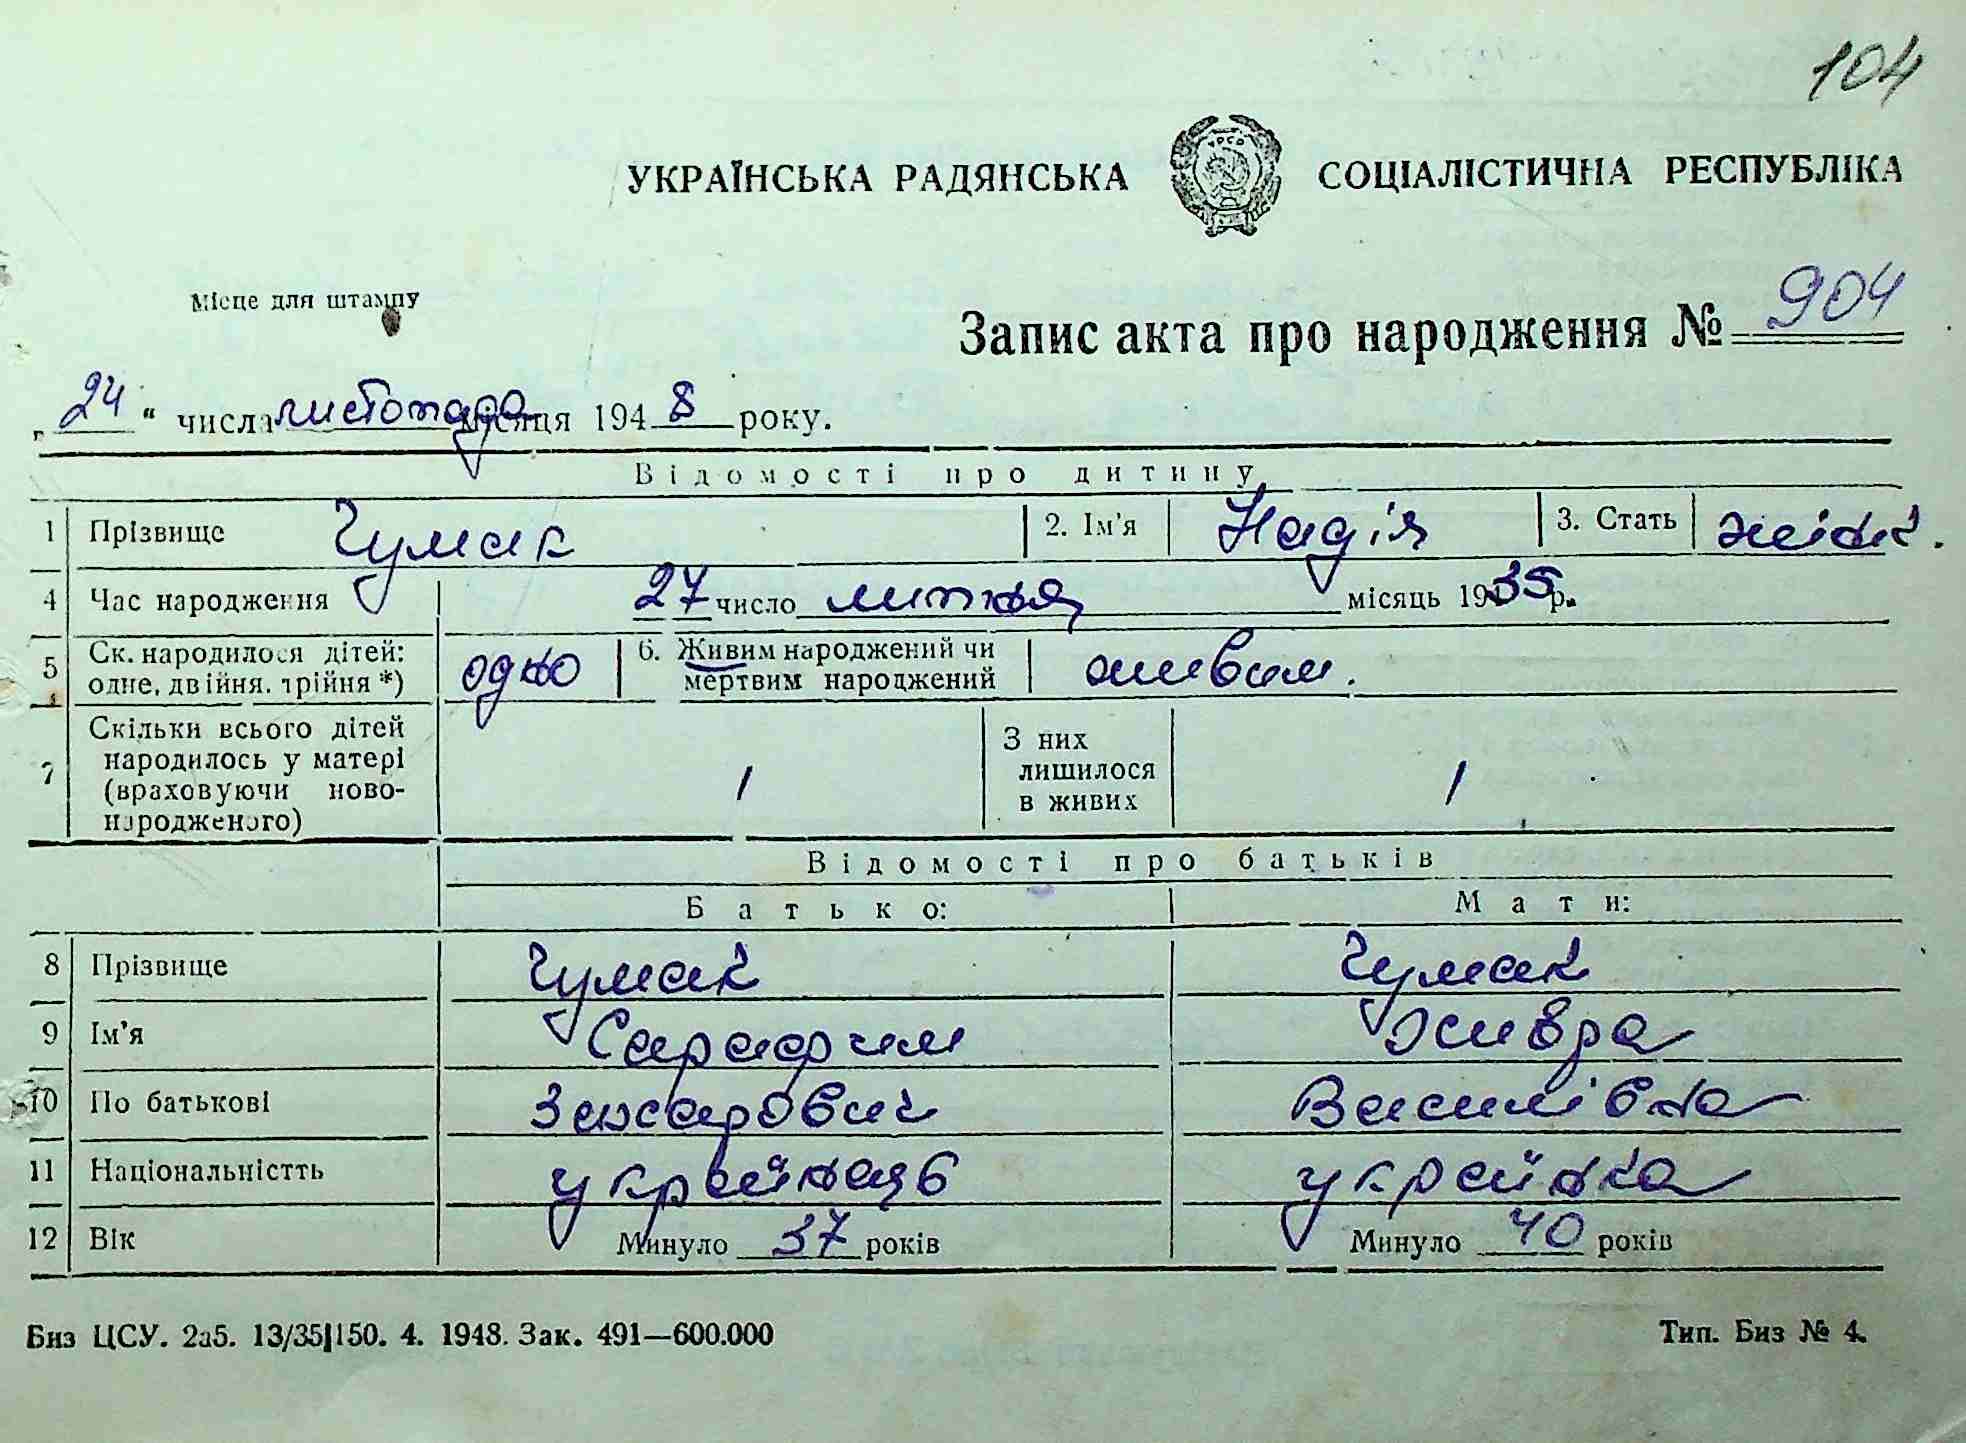 104
УКРАЇНСЬКА РАДЯНСЬКА СОЦІАЛІСТИЧНА РЕСПУБЛІКА
УРСР
Місце для штампу
Запис акта про народження № 904
„24“ числа листопада місяця 1948 року.
Відомості про дитину
1 Прізвище Чумак 2. Ім'я Надія 3. Стать жіноч.
4 Час народження 27 число липня місяць 1935 р.
5 Ск. народилося дітей: одне, двійня, трійня *) одно 6. Живим народжений чи мертвим народжений живим.
7 Скільки всього дітей народилось у матері (враховуючи новонародженого) 1 З них лишилося в живих 1
Відомості про батьків
Батько: Мати:
8 Прізвище Чумак Чумак
9 Ім'я Серафим Хивря
10 По батькові Захарович Василівна
11 Національністть українець українка
12 Вік Минуло 37 років Минуло 40 років
Биз ЦСУ. 2а5. 13/35|150. 4. 1948. Зак. 491—600.000 Тип. Биз № 4.